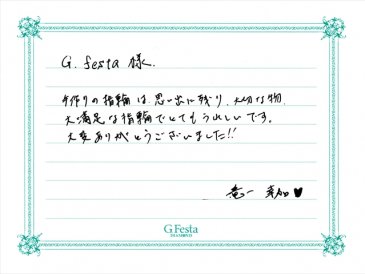 G. festa 様.
手作りの指輪は、思い出に残り、大切な物.
大満足な指輪でとてもうれしいです。
大変ありがとうございました!!
竜一 ♥
G.Festa
DIAMOND